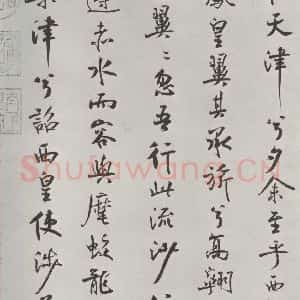 天津兮夕余至乎西
鳳皇翼其承旂兮高翱
翼〻忽吾行此流沙
遵赤水而容與麾蛟龍
津兮詔西皇使涉
Shufawang.CN